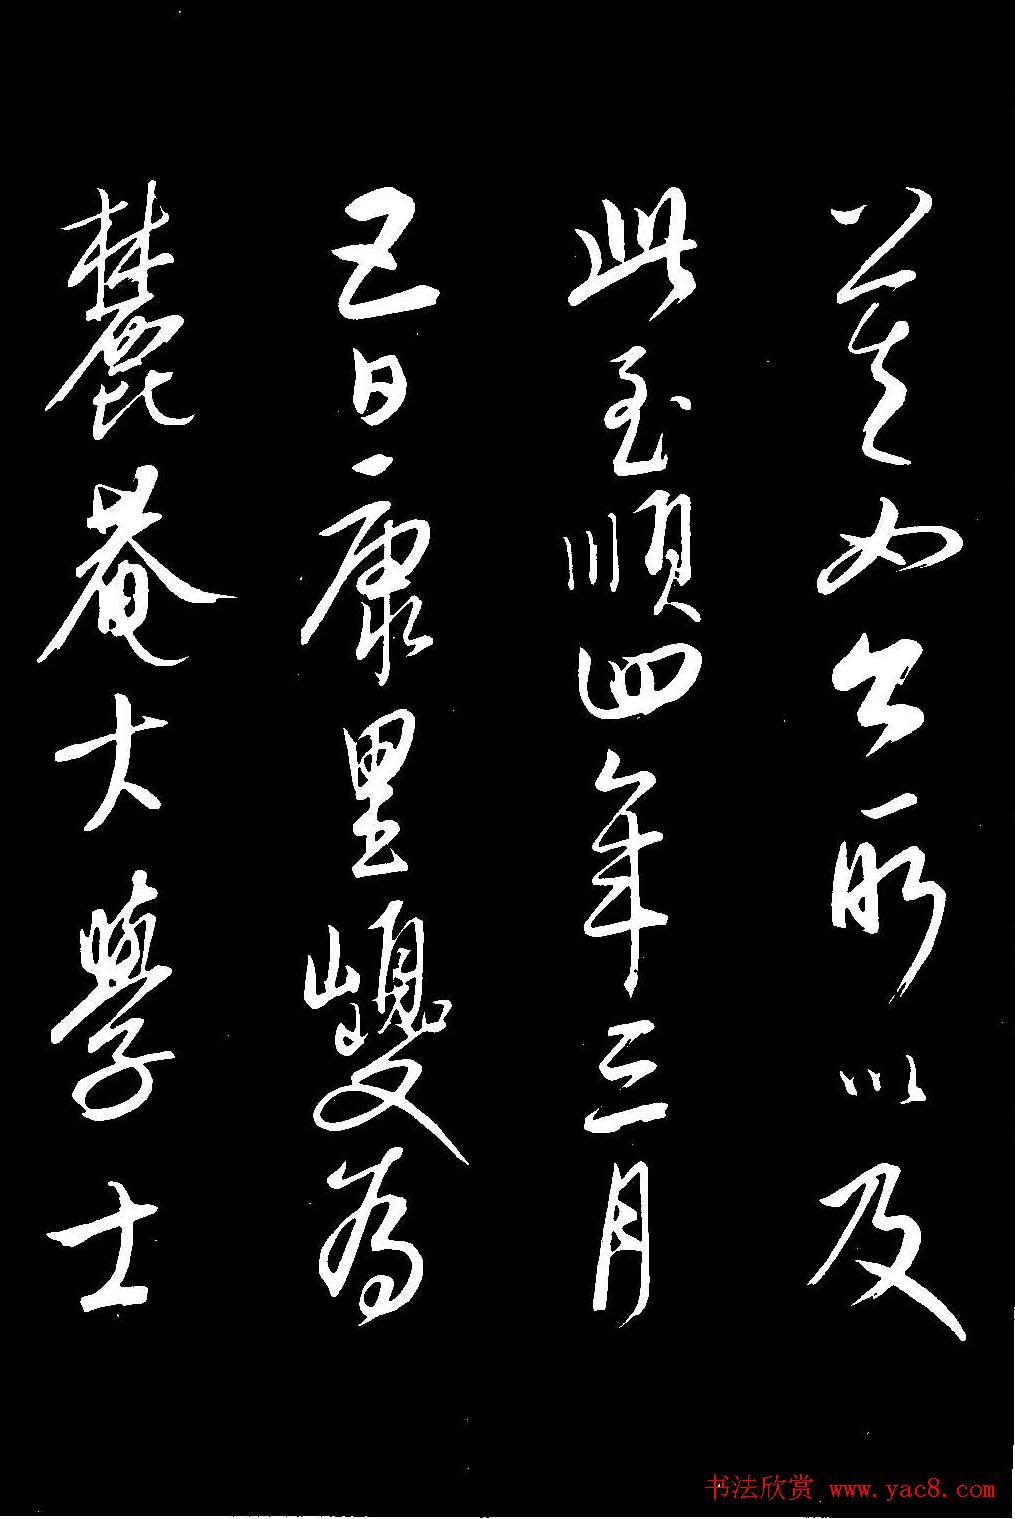 所以及
此至順四年三月
五日康里巎為
麓菴大學士
书法欣赏 www.yac8.com